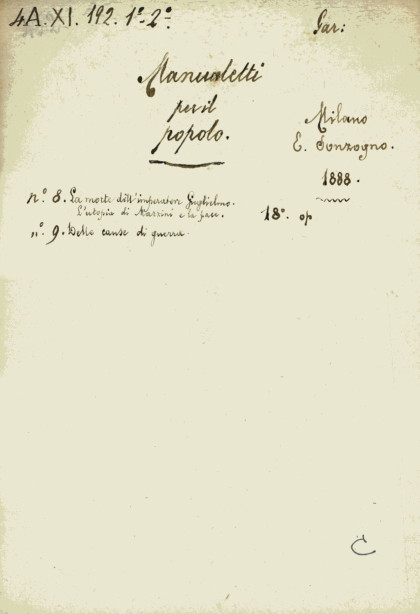 4A. XI. 192. 1°-2°.
Gar:
Manualetti
per il
popolo.
Milano
E. Sonzogno.
1888.
n° 8. La morte dell'imperatore Guglielmo.
L'utopia di Mazzini e la pace.
18°. op
n° 9. Delle cause di guerra.
C